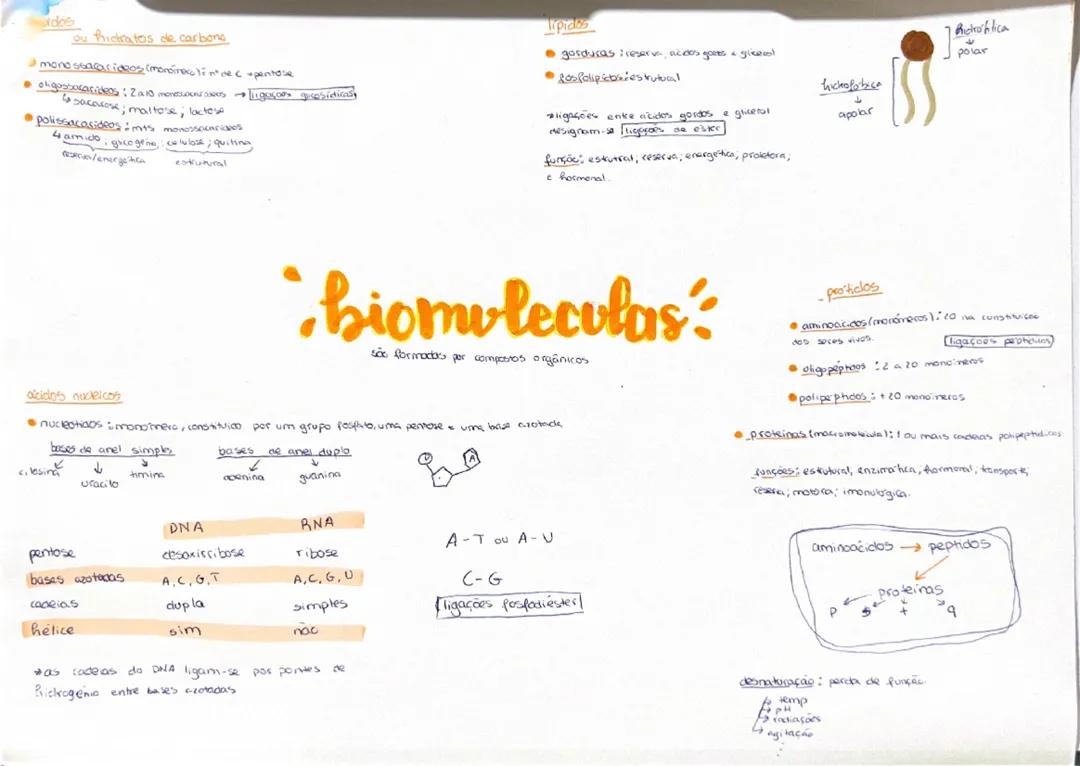 ou hidratos de carbono
monossacarídeos (monómero): nº de C → pentose
oligossacarídeos: 2 a 10 monossacarídeos → ligações glicosídicas
↳ sacarose; maltose; lactose
polissacarídeos: mts monossacarídeos
↳ amido, glicogénio; celulose; quitina
reserva/energética estrutural
lípidos
gorduras: reserva, ácidos gordos e glicerol
fosfolípidos: estrutural
*ligações entre ácidos gordos e glicerol
designam-se ligações de éster
função: estrutral, reserva, energética, protetora,
e hormonal.
hidrofílica
↓
polar
hidrofóbica
↓
apolar
biomoleculas
são formadas por compostos orgânicos
prótidos
aminoácidos (monómeros): 20 na constituição
dos seres vivos. ligações peptídicas
oligopéptidos: 2 a 20 monómeros
polipéptidos: +20 monómeros
proteínas (macromolécula): 1 ou mais cadeias polipeptídicas
funções: estrutural, enzimática, hormonal, transporte,
reserva; motora; imunológica.
aminoácidos → péptidos
proteínas
p s t q
desnaturação: perda de função.
temp
pH
radiações
agitação
ácidos nucleicos
nucleótidos: monómero, constituído por um grupo fosfato, uma pentose e uma base azotada
bases de anel simples bases de anel duplo
citosina uracilo timina adenina guanina
P A
DNA RNA
pentose desoxirribose ribose
bases azotadas A, C, G, T A, C, G, U
cadeias dupla simples
hélice sim não
A-T ou A-U
C-G
ligações fosfodiéster
*as cadeias do DNA ligam-se por pontes de
hidrogénio entre bases azotadas